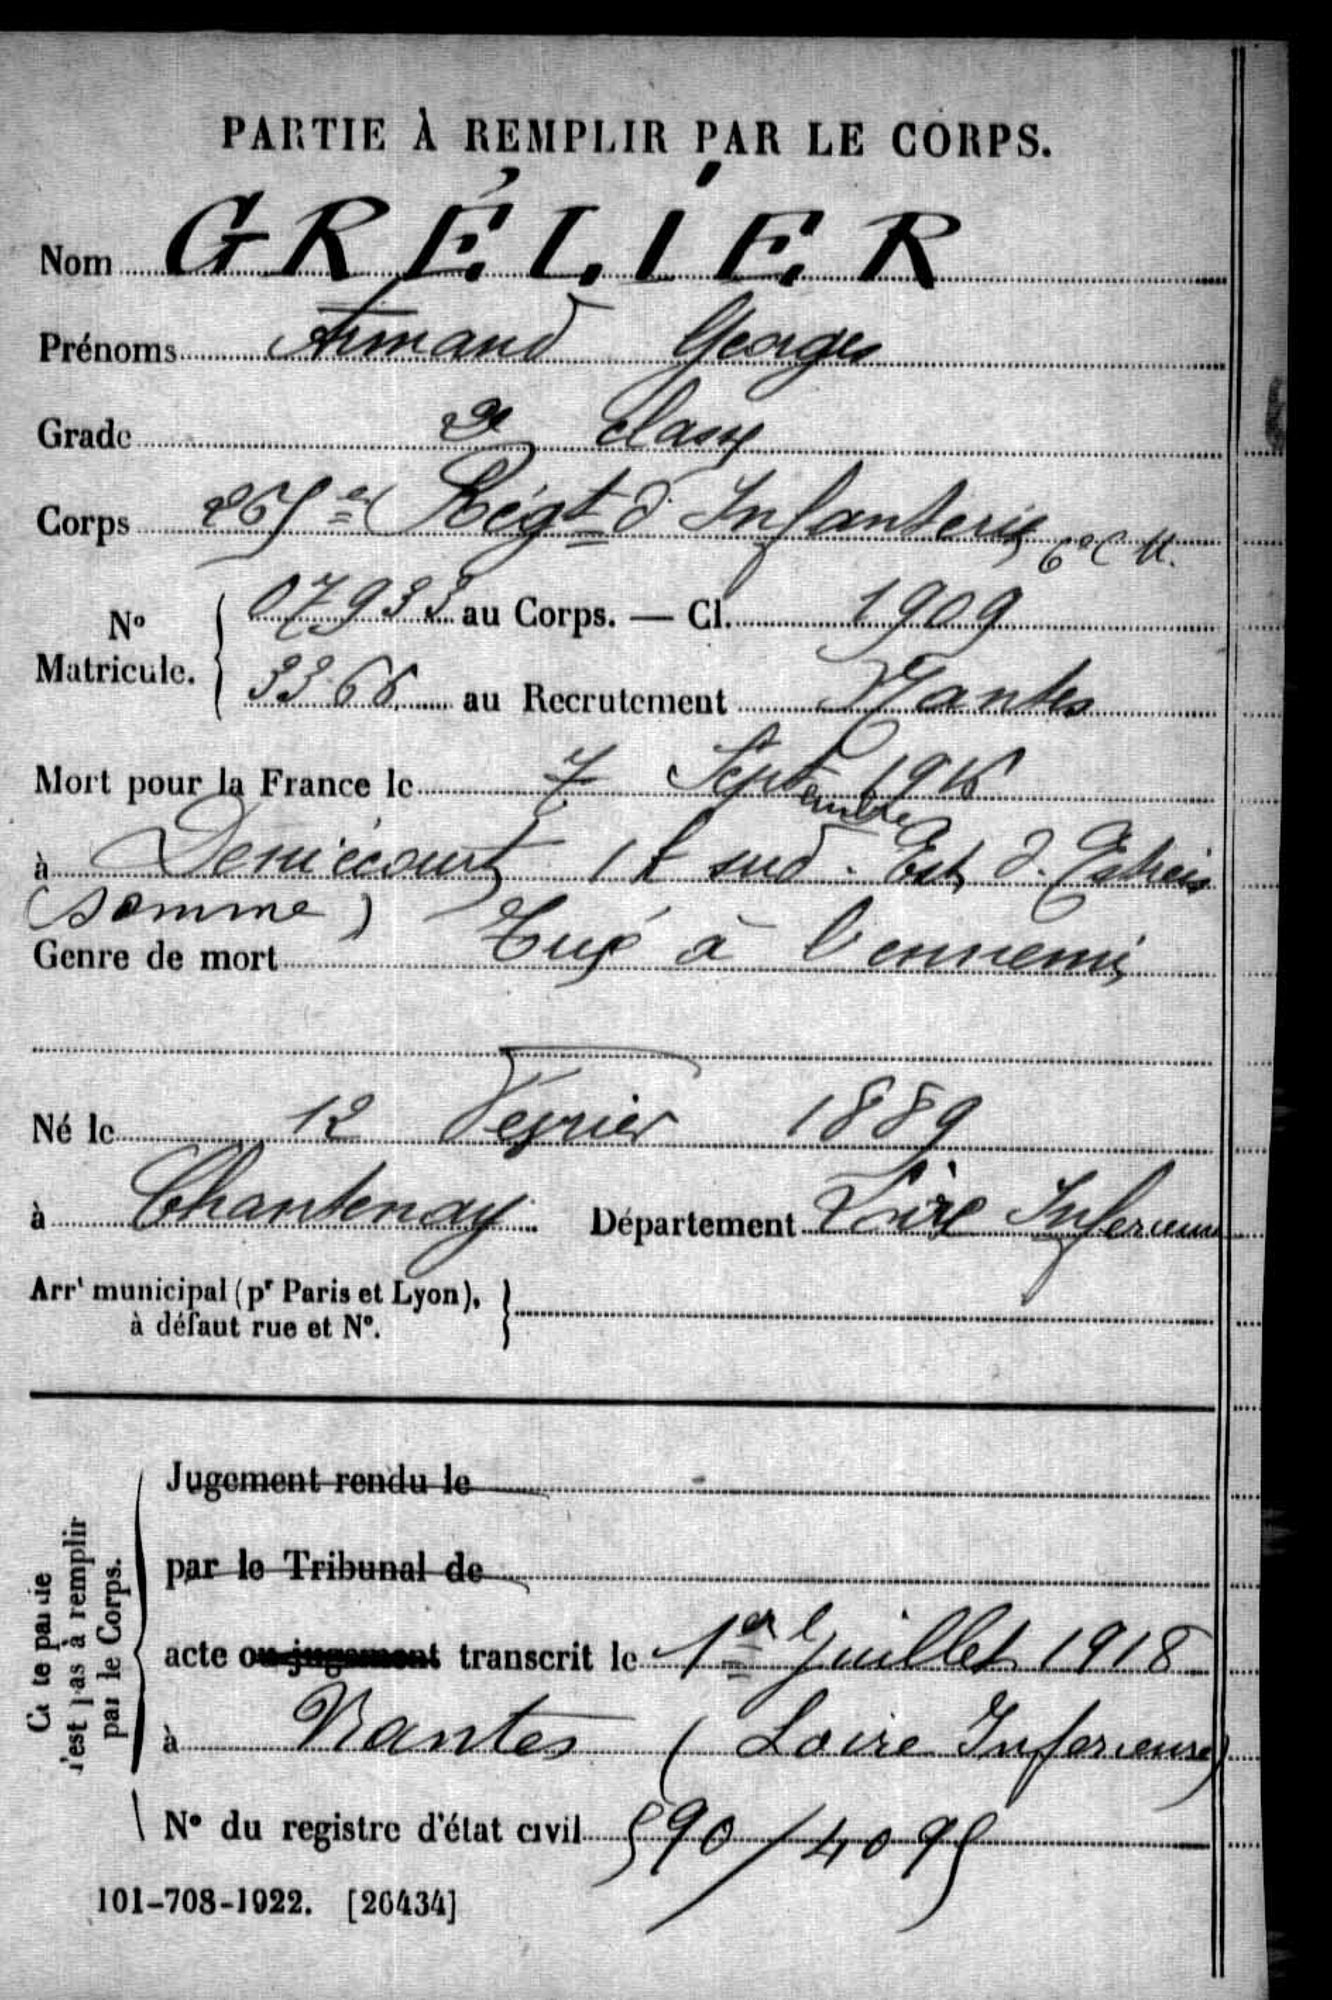 PARTIE À REMPLIR PAR LE CORPS.
Nom GRÉLIER
Prénoms Armand Georges
Grade 2e Classe
Corps 265e Régt d'Infanterie 6e C M.
N° Matricule. 07933 au Corps. — Cl. 1909
3366 au Recrutement Nantes
Mort pour la France le 7 Septembre 1916
à Deniécourt 1 k sud. Est d. Estrées
(Somme)
Genre de mort Tué à l'ennemi
Né le 12 Février 1889
à Chantenay Département Loire Inferieure
Arrt municipal (pr Paris et Lyon),
à défaut rue et N°.
Cette partie
n'est pas à remplir
par le Corps.
Jugement rendu le
par le Tribunal de
acte ou jugement transcrit le 1er Juillet 1918
à Nantes (Loire Inferieure)
N° du registre d'état civil 590/4095
101-708-1922. [26434]